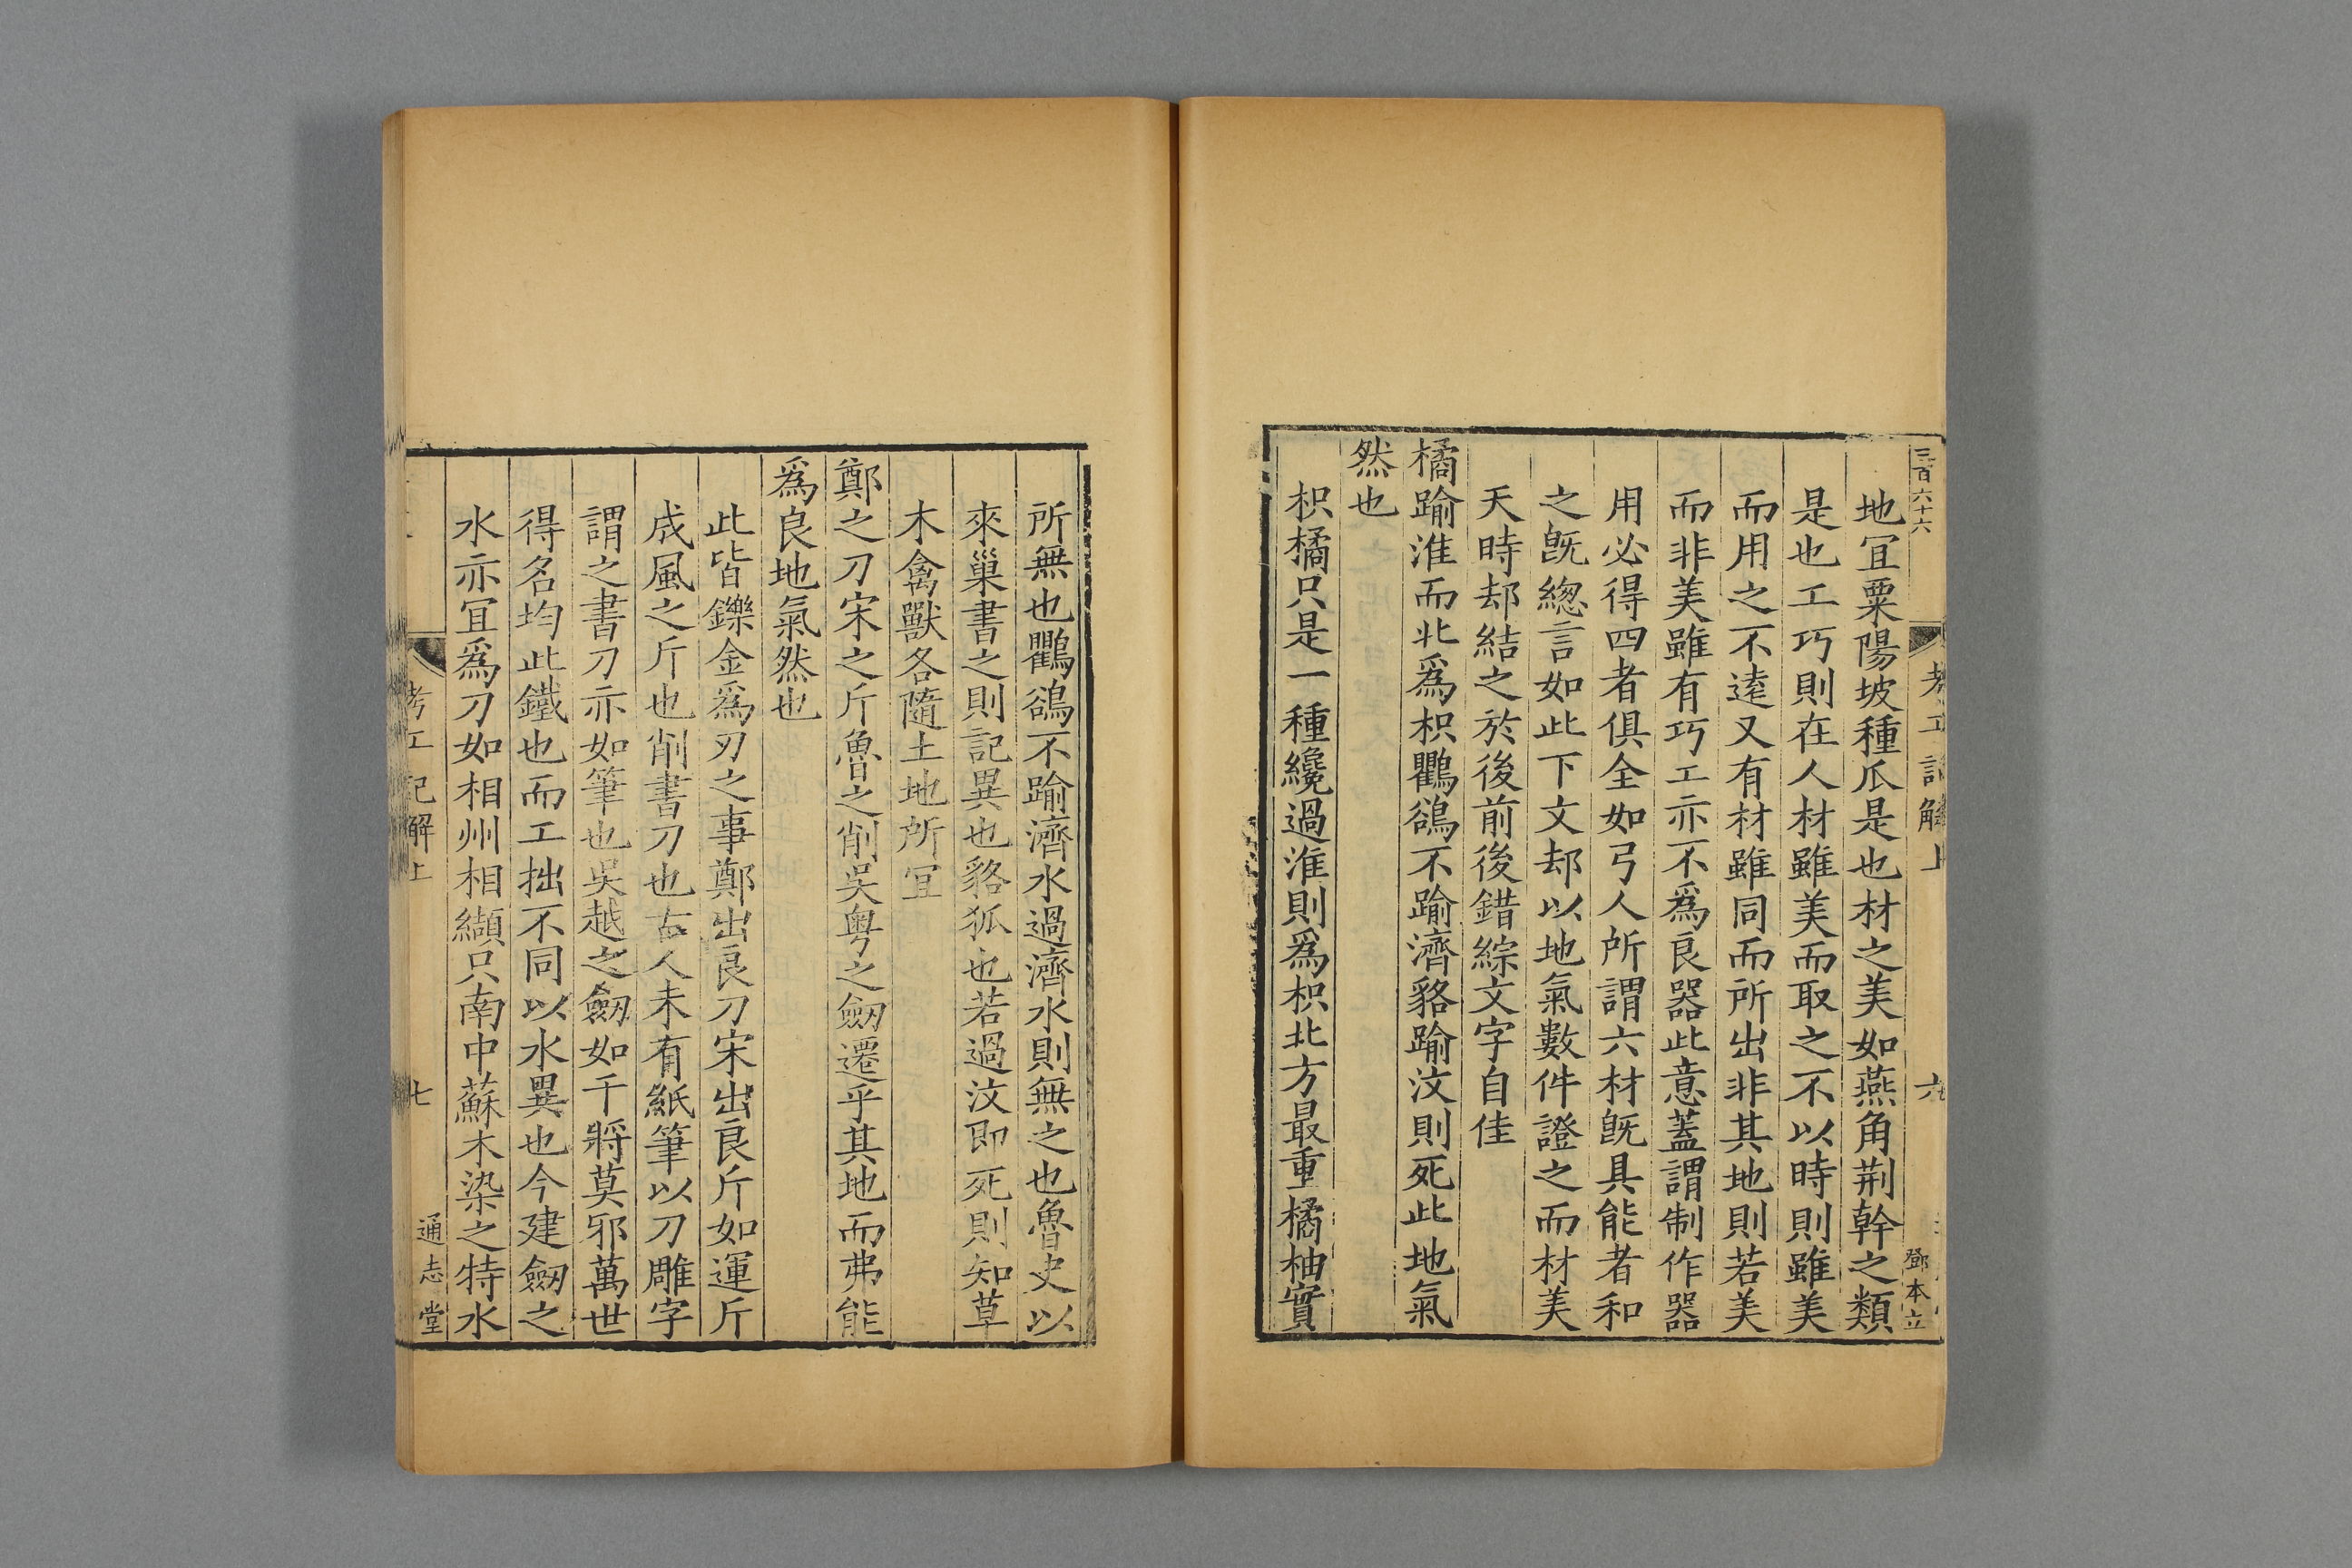 三百六十六
考工記解上
六
鄧本立
地冝粟陽坡種瓜是也材之美如燕角荆幹之類
是也工巧則在人材雖美而取之不以時則雖美
而用之不逺又有材雖同而所出非其地則若美
而非美雖有巧工亦不爲良器此意蓋謂制作器
用必得四者俱全如弓人所謂六材旣具能者和
之旣緫言如此下文却以地氣數件證之而材美
天時却結之於後前後錯綜文字自佳
橘踰淮而北爲枳鸜鵒不踰濟貉踰汶則死此地氣
然也
枳橘只是一種纔過淮則爲枳北方最重橘柚實
所無也鸜鵒不踰濟水過濟水則無之也魯史以
來巢書之則記異也貉狐也若過汶即死則知草
木禽獸各隨土地所冝
鄭之刀宋之斤魯之削吴粤之劒遷乎其地而弗能
爲良地氣然也
此皆鑠金爲刃之事鄭出良刀宋出良斤如運斤
成風之斤也削書刀也古人未有紙筆以刀雕字
謂之書刀亦如筆也吴越之劒如干將莫邪萬世
得名均此鐵也而工拙不同以水異也今建劒之
水亦冝爲刀如相州相纈只南中蘇木染之特水
考工記解上
七
通志堂